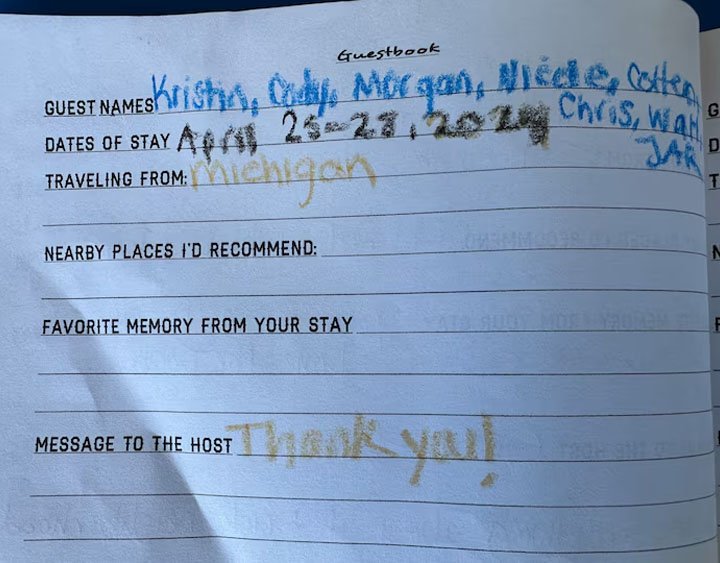 Guestbook
GUEST NAMES Kristin, Cody, Morgan, Nicole, Colten,
Chris, Walt,
DATES OF STAY April 25-27, 2024
JAR
TRAVELING FROM: michigan
NEARBY PLACES I'D RECOMMEND:
FAVORITE MEMORY FROM YOUR STAY
MESSAGE TO THE HOST Thank you!